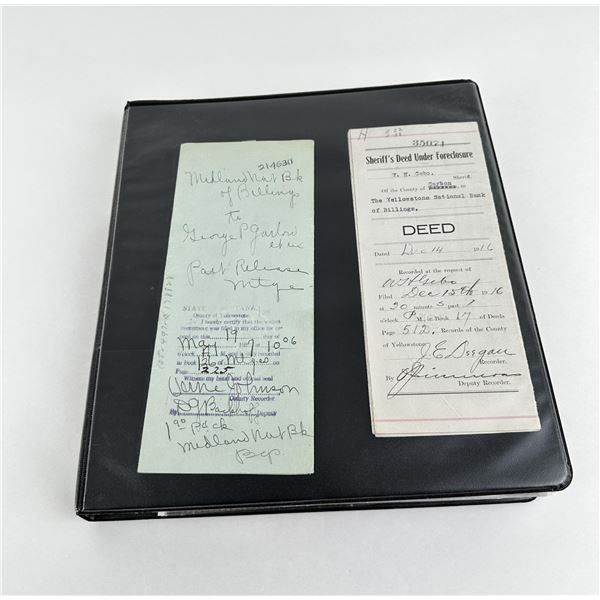 2146311
Midland Nat Bk
of Billings
to
George P Garlow
et ux
Part Release
Mtge
STATE
County of Yellowstone
I hereby certify that the within
instrument was filed in my office for
19 day of
10:06
o'clock M. and duly recorded
in book 126 of Mtges
Page 225
Witness my hand and official seal
Johnson
County Recorder
By Deputy
Midland Nat Bk
H
35071
Sheriff's Deed Under Foreclosure
Sebo, Sheriff
Of the County of Carbon to
The Yellowstone National Bank
of Billings.
DEED
Dated Dec 14 1916
Recorded at the request of
Filed Dec 15th 1916
at 30 minutes past 1
o'clock P M., in Book 17 of Deeds
Page 512, Records of the County
of Yellowstone
J.E. Deegan
Recorder.
By
Deputy Recorder.